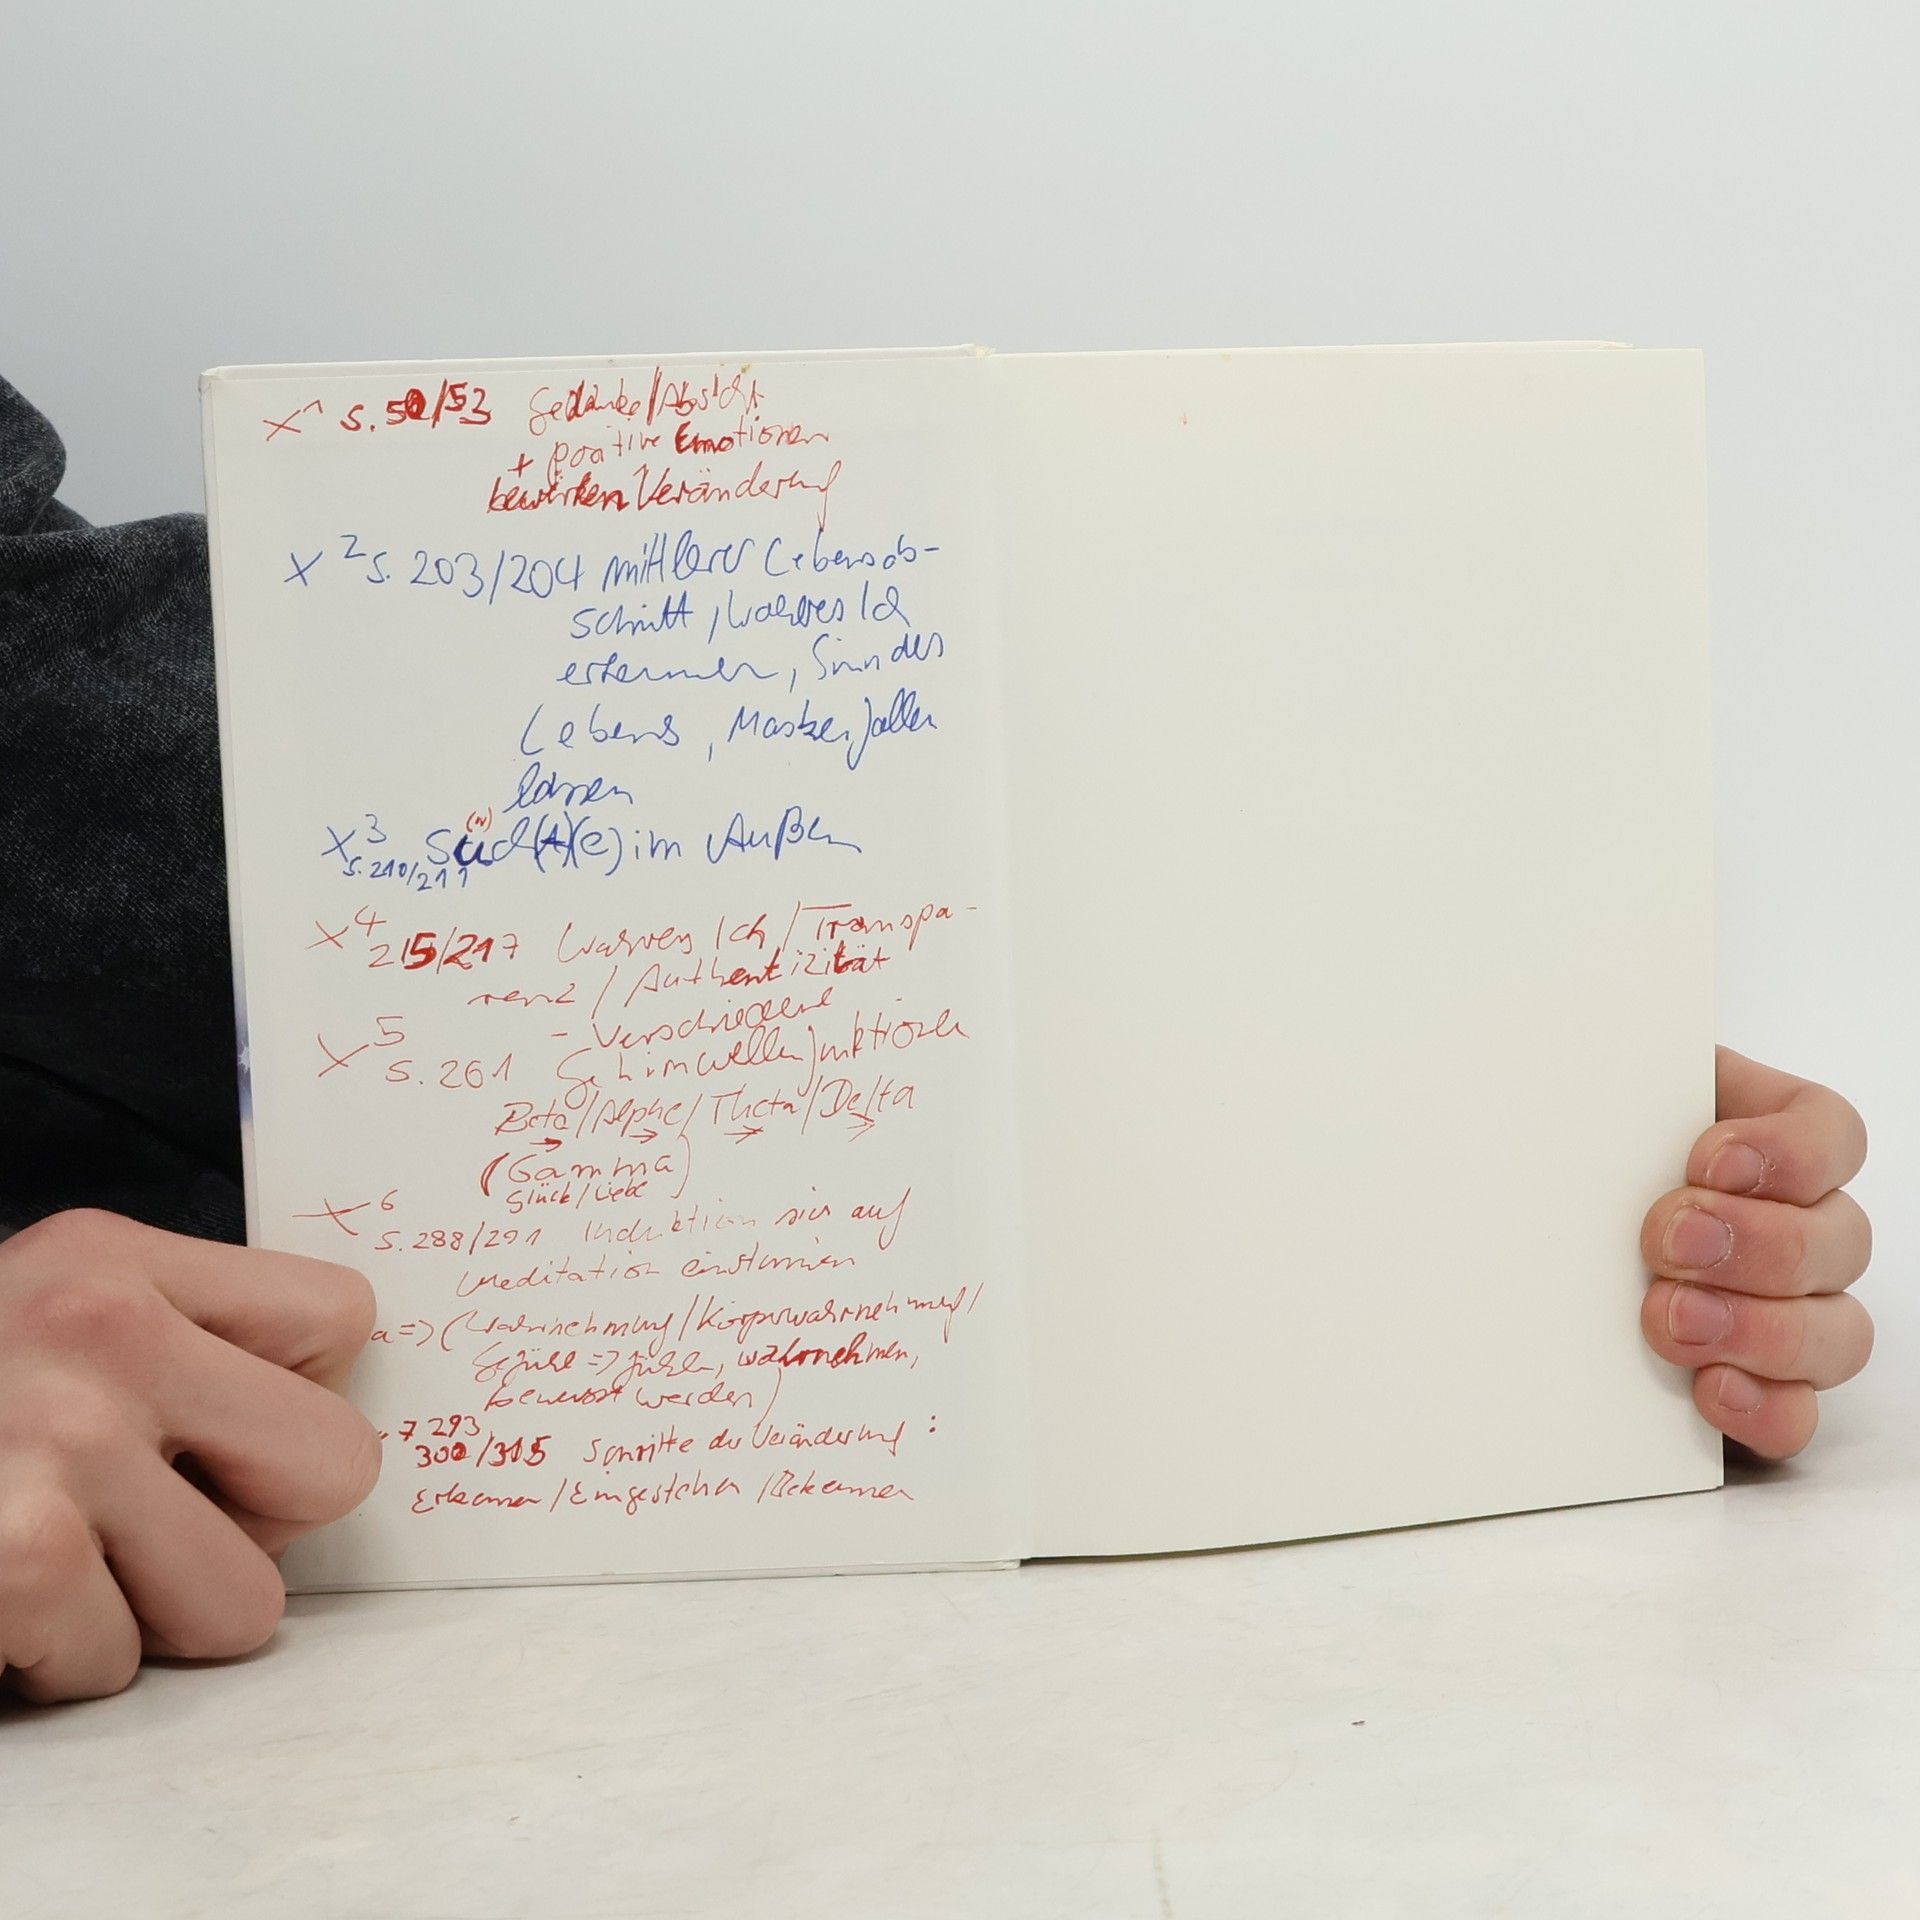 X¹ S. 50/53 Gedanke/Absicht
+ positive Emotionen
bewirken Veränderung
X² S. 203/204 mittlerer Lebensab-
schnitt, wahres Ich
erkennen, Sinn des
Lebens, Masken fallen
lassen
X³ (n) im Außen
S. 210/211
X⁴ 215/217 wahres Ich/Transpa-
renz/Authentizität
X⁵ - verschiedene
S. 261 Gehirnwellenfunktionen
Beta/Alpha/Theta/Delta
→ → → →
(Gamma)
Glück/Liebe
X⁶
S. 288/291 Induktion sich auf
Meditation einstimmen
a => (Wahrnehmung/Körperwahrnehmung/
Gefühl => fühlen, wahrnehmen,
bewusst werden)
7 293,
300/315 Schritte der Veränderung:
Erkennen/Eingestehen/Bekennen